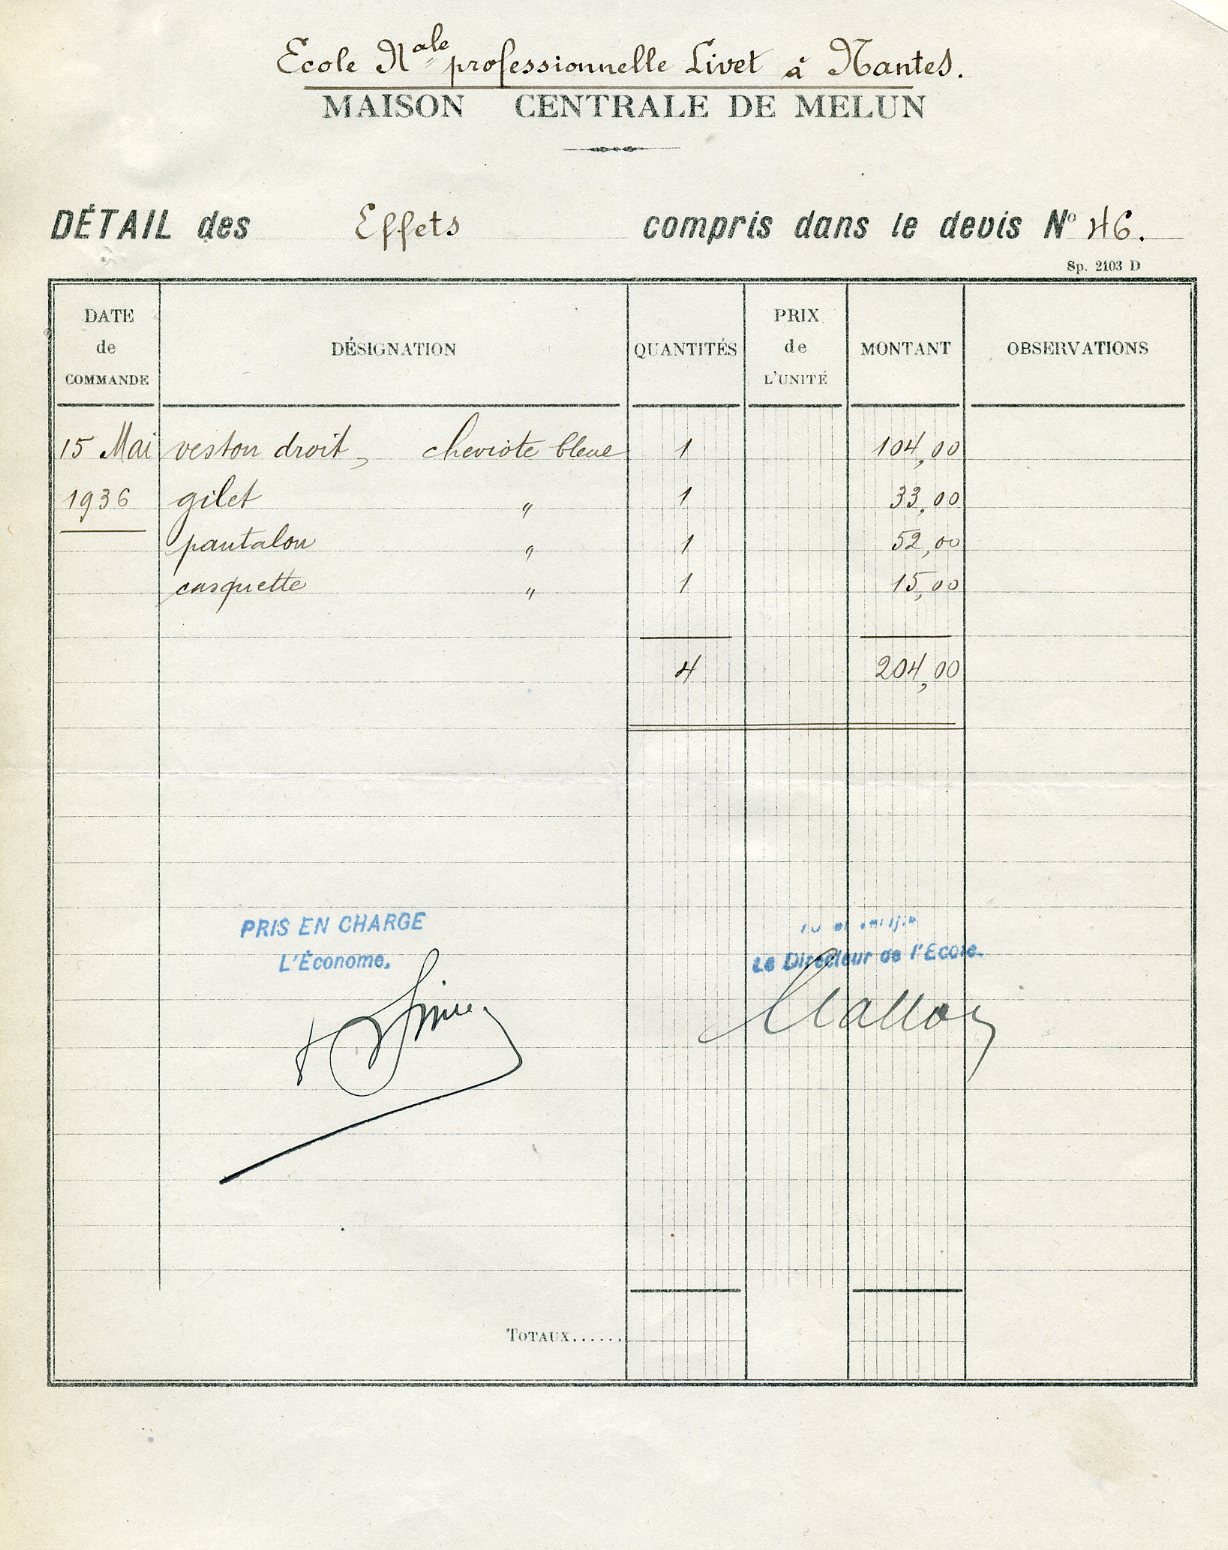 Ecole Nale professionnelle Livet à Nantes.
MAISON CENTRALE DE MELUN
DÉTAIL des Effets compris dans le devis No 46.
Sp. 2103 D
DATE de COMMANDE DÉSIGNATION QUANTITÉS PRIX de L'UNITÉ MONTANT OBSERVATIONS
15 Mai veston droit, cheviote bleue 1 104,00
1936 gilet " 1 33,00
pantalon " 1 52,00
casquette " 1 15,00
4 204,00
PRIS EN CHARGE
L'Économe,
Le Directeur de l'Ecole.
TOTAUX......